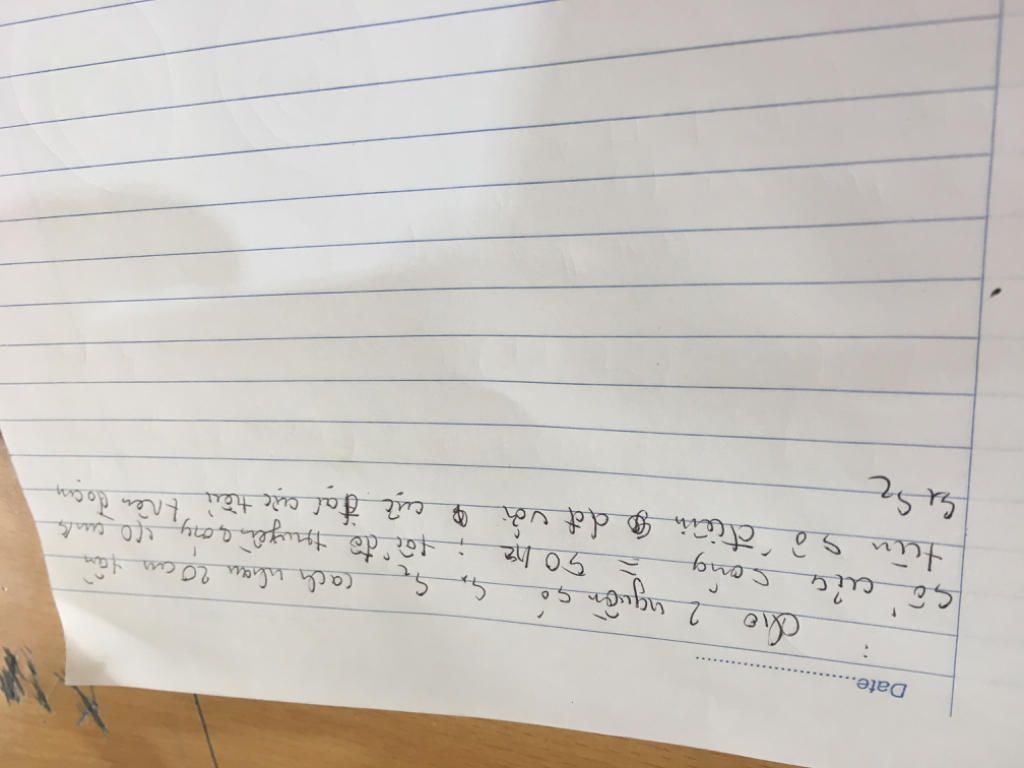 Date
: Cho 2 nguồn số S1 S2 cách nhau 20 cm tần
số của sóng = 50 Hz ; tốc độ truyền sóng cm/s
tìm số điểm dđ với cực đại cực tiểu trên đoạn
S1 S2